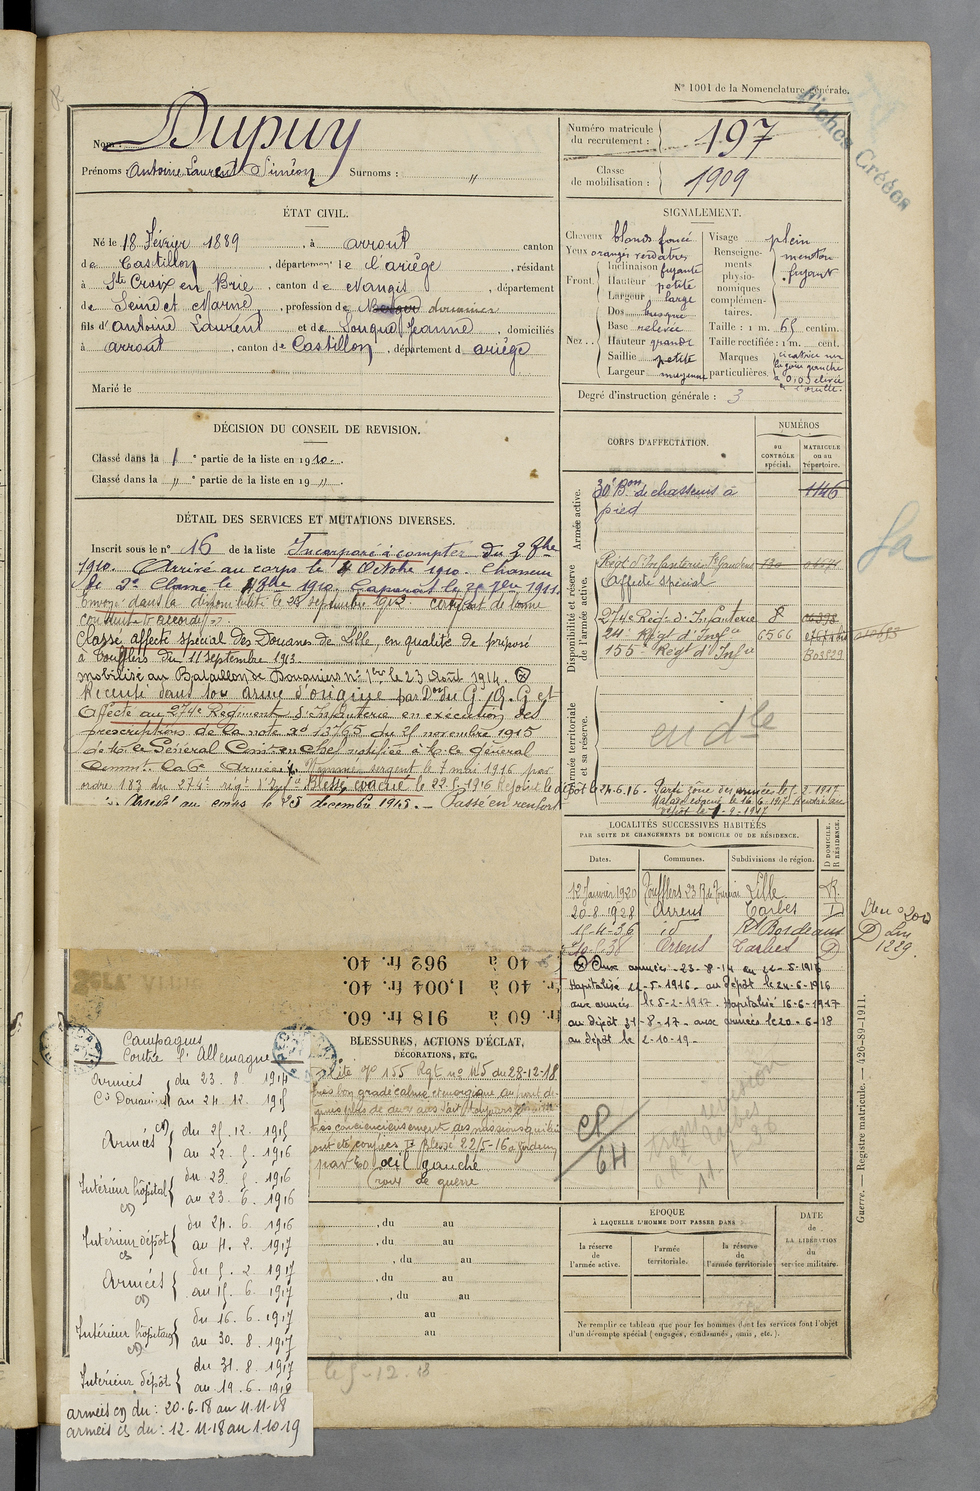 N° 1001 de la Nomenclature générale.
Fiches Créées
Nom : Dupuy
Prénoms : Antoine Laurent Siméon Surnoms : "
Numéro matricule du recrutement : 197
Classe de mobilisation : 1909
ÉTAT CIVIL.
Né le 18 Février 1889, à Arrout canton
de Castillon, département de l'ariège, résidant
à Ste Croix en Brie, canton de Nangis, département
de Seine et Marne, profession de Berger douanier
fils d'Antoine Laurent et de Souqué Jeanne, domiciliés
à arrout, canton de Castillon, département d ariège
Marié le
SIGNALEMENT.
Cheveux blonds foncé
Yeux orangés verdatres
Front Inclinaison fuyante
Hauteur petite
Largeur large
Nez Dos busqué
Base relevée
Hauteur grande
Saillie petite
Largeur moyenne
Visage plein
Renseignements physionomiques complémentaires. menton fuyant
Taille : 1 m. 65 centim.
Taille rectifiée : 1 m. cent.
Marques particulières. cicatrice sur
la joue gauche
à 0,03
l'oreille
Degré d'instruction générale : 3
DÉCISION DU CONSEIL DE REVISION.
Classé dans la 1e partie de la liste en 1910.
Classé dans la " e partie de la liste en 19 "
DÉTAIL DES SERVICES ET MUTATIONS DIVERSES.
Inscrit sous le n° 16 de la liste Incorporé à compter du 2 8bre
1910. Arrivé au corps le 4 Octobre 1910. Chasseur
de 2e Classe le 4 8bre 1910. Caporal le 1911.
Envoyé dans la disponibilité le 25 septembre 1912. Certificat de bonne
conduite accordé.
Classé affecté spécial des Douanes de Lille, en qualité de préposé
à Toufflers du 11 Septembre 1913.
Mobilisé au Bataillon de Douaniers n° 1 le 23 Août 1914.
dans son arme d'origine par Don du G.Q.G et
Affecté au 274e Régiment d'Infanterie en exécution des
prescriptions de la note no 13765 du 25 novembre 1915
de M. le Général Comt en Chef notifiée à M. le Général
Commt. la 6e Armée. Nommé sergent le 7 mai 1916 par
ordre 183 du 274e rég. d'Infie Blessé évacué le 22.5.1916 Rejoint le dépôt le 24.6.16. Parti zone des armées le 5.2.1917
Malade évacué le 16.6.1917 Rentré au
dépôt le 1-9-1917
Arrivé au corps le 25 décembre 1915. Passé en renfort
CORPS D'AFFECTATION.
NUMÉROS
au CONTRÔLE spécial.
MATRICULE ou au répertoire.
Armée active.
30e Bon de chasseurs à pied 1146
Disponibilité et réserve de l'armée active.
Régt d'Infanterie St Gaudens
Affecté spécial
274e Rég. d'Infanterie 8
24e Régt d'Infie 6566
155e Régt d'Infie
Armée territoriale et sa réserve.
en dle
fa
LOCALITÉS SUCCESSIVES HABITÉES
PAR SUITE DE CHANGEMENTS DE DOMICILE OU DE RÉSIDENCE.
Dates. Communes. Subdivisions de région. D DOMICILE. R RÉSIDENCE.
12 Janvier 1920 Toufflers 23 R de Tournai Lille R.
20-8-1928 Arrens Tarbes D
15-4-36 id Bordeaux
Arrens Tarbes D
Aux armées 23-8-14 au 22-5-1916
Hospitalisé 22-5-1916 au dépôt le 24-6-1916
aux armées le 5-2-1917. Hospitalisé 16-6-1917
au dépôt 31-8-17. aux armées le 20-6-18
au dépôt le 2-10-19
1229.
40 à 962 fr. 40.
fr. 40 à 1,004 fr. 40.
fr. 60 à 918 fr. 60.
BLESSURES, ACTIONS D'ÉCLAT,
DÉCORATIONS, ETC.
Cité 155 Rgt no 115 du 28-12-18
très bon gradé calme et énergique au front de-
puis plus de deux ans s'est toujours
très consciencieusement des missions qui lui
ont été confiées Blessé 22/5-16 à
par éo œil gauche
Croix de guerre
Campagnes
Contre l'Allemagne
Armées du 23. 8 1914
Cs Douaniers au 24. 12. 1915
Armées du 25. 12. 1915
au 22. 5. 1916
Intérieur hôpital du 23. 5. 1916
au 23. 6. 1916
Intérieur dépôt du 24. 6. 1916
au 4. 2. 1917
Armées du 5. 2. 1917
au 15. 6. 1917
Intérieur hôpitaux du 16. 6. 1917
au 30. 8. 1917
Intérieur dépôt du 31. 8. 1917
au 19. 6. 1918
armées du : 20-6-18 au 11-11-18
armées du : 12-11-18 au 1-10-19
, du au
, du au
, du au
, du au
, du au
au
au
le 5-12-18
CP
64
ÉPOQUE
À LAQUELLE L'HOMME DOIT PASSER DANS
la réserve de l'armée active.
l'armée territoriale.
la réserve de l'armée territoriale
DATE de LA LIBÉRATION du service militaire.
Ne remplir ce tableau que pour les hommes dont les services font l'objet
d'un décompte spécial (engagés, condamnés, omis, etc.).
Guerre. — Registre matricule. — 426-89-1911.